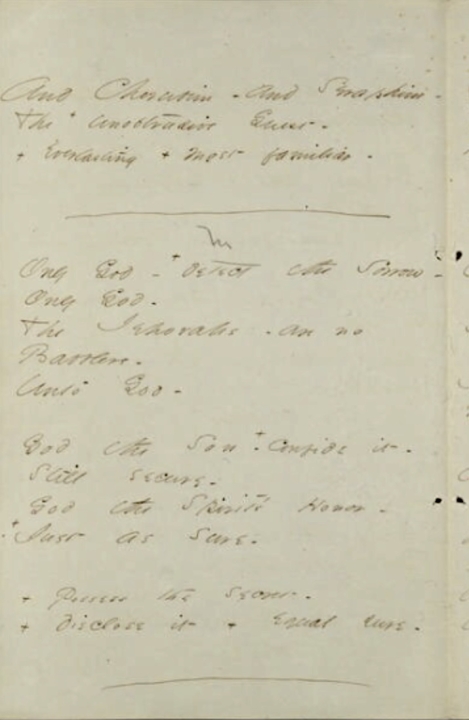 And Cherubim - and Seraphim -
The + unobtrusive Guest -
+ Everlasting + most familiar -
Only God - + detect the Sorrow -
Only God -
The Jehovahs - are no
Babblers -
Unto God -
God the Son - + confide it -
Still secure -
God the Spirit's Honor -
+ Just as sure -
+ the Secret -
+ Disclose it + Equal sure -